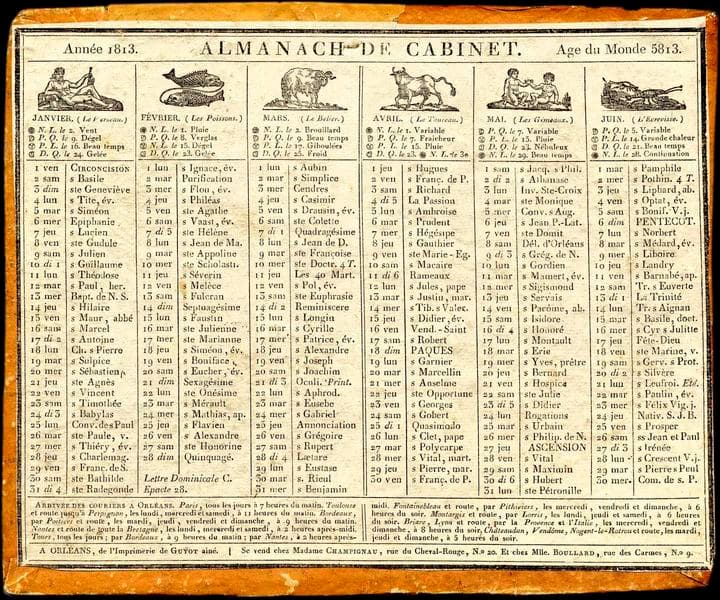 Année 1813.
ALMANACH DE CABINET.
Age du Monde 5813.
JANVIER. (Le Verseau.)
N. L. le 2. Vent
P. Q. le 9. Dégel
P. L. le 16. Beau temps
D. Q. le 24. Gelée
1 ven CIRCONCISION
2 sam s Basile
3 dim ste Geneviève
4 lun s Tite, év.
5 mar s Siméon
6 mer Epiphanie
7 jeu s Lucien
8 ven ste Gudule
9 sam s Julien
10 di 1 s Guillaume
11 lun s Théodose
12 mar s Paul, her.
13 mer Bapt. de N. S.
14 jeu s Hilaire
15 ven s Maur, abbé
16 sam s Marcel
17 di 2 s Antoine
18 lun Ch. s Pierre
19 mar s Sulpice
20 mer s Sébastien
21 jeu ste Agnès
22 ven s Vincent
23 sam s Timothée
24 di 3 s Babylas
25 lun Conv. de s Paul
26 mar ste Paule, v.
27 mer s Thiéry, év.
28 jeu s Charlemag.
29 ven s Franc. de S.
30 sam ste Bathilde
31 di 4 ste Radegonde
FÉVRIER. (Les Poissons.)
N. L. le 1. Pluie
P. Q. le 8. Verglas
N. L. le 15. Dégel
D. Q. le 23. Gelée
1 lun s Ignace, év.
2 mar Purification
3 mer s Flou, év.
4 jeu s Philéas
5 ven ste Agathe
6 sam s Vaast, év.
7 di 5 ste Hélène
8 lun s Jean de Ma.
9 mar ste Appoline
10 mer ste Scholast.
11 jeu s Séverin
12 ven s Melèce
13 sam s Fulcran
14 dim Septuagésime
15 lun s Faustin
16 mar ste Julienne
17 mer ste Marianne
18 jeu s Siméon, év.
19 ven s Boniface
20 sam s Eucher, év.
21 dim Sexagésime
22 lun ste Onésime
23 mar s Mérault
24 mer s Mathias, ap.
25 jeu s Flavien
26 ven s Alexandre
27 sam ste Honorine
28 dim Quinquagé.
Lettre Dominicale C.
Epacte 28.
MARS. (Le Belier.)
N. L. le 2. Brouillard
P. Q. le 9. Beau temps
P. L. le 17. Giboulées
D. Q. le 25. Froid
1 lun s Aubin
2 mar s Simplice
3 mer Cendres
4 jeu s Casimir
5 ven s Drausin, év.
6 sam ste Colette
7 di 1 Quadragésime
8 lun s Jean de D.
9 mar ste Françoise
10 mer ste Docte. 4 T.
11 jeu Les 40 Mart.
12 ven s Pol, év.
13 sam ste Euphrasie
14 di 2 Reminiscere
15 lun s Longin
16 mar s Cyrille
17 mer s Patrice, év.
18 jeu s Alexandre
19 ven s Joseph
20 sam s Joachim
21 di 3 Oculi. Print.
22 lun s Aphrod.
23 mar s Eusebe
24 mer s Gabriel
25 jeu Annonciation
26 ven s Grégoire
27 sam s Rupert
28 di 4 Lætare
29 lun s Eustase
30 mar s. Rieul
31 mer s Benjamin
AVRIL. (Le Taureau.)
N. L. le 1. Variable
P. Q. le 7. Fraîcheur
P. L. le 15. Pluie
D. Q. le 23. N. L. le 30
1 jeu s Hugues
2 ven s Franç. de P.
3 sam s Richard
4 di 5 La Passion
5 lun s Ambroise
6 mar s Prudent
7 mer s Hégésipe
8 jeu s Gauthier
9 ven ste Marie-Eg.
10 sam s Macaire
11 di 6 Rameaux
12 lun s Jules, pape
13 mar s Justin, mar.
14 mer s Tib. s Valex.
15 jeu s Didier, év.
16 ven Vend.-Saint
17 sam s Robert
18 dim PAQUES
19 lun s Garnier
20 mar s Marcellin
21 mer s Anselme
22 jeu ste Opportune
23 ven s Georges
24 sam s Gobert
25 di 1 Quasimodo
26 lun s Clet, pape
27 mar s Polycarpe
28 mer s Vital, mart.
29 jeu s Pierre, mar.
30 ven s Franç. de P.
MAI. (Les Gémeaux.)
P. Q. le 7. Variable
P. L. le 15. Pluie
D. Q. le 23. Nébuleux
N. L. le 29. Beau temps
1 sam s Jacq. s Phil.
2 di 2 s Athanase
3 lun Inv. Ste-Croix
4 mar ste Monique
5 mer Conv. s Aug.
6 jeu s Jean P.-Lat.
7 ven ste Domit
8 sam Dél. d'Orléans
9 di 3 s Grég. de N.
10 lun s Gordien
11 mar s Mamert, év.
12 mer s Sigismond
13 jeu s Servais
14 ven s Pacôme, ab.
15 sam s Isidore
16 di 4 s Honoré
17 lun s Montault
18 mar s Erie
19 mer s Yves, prêtre
20 jeu s Bernard
21 ven s Hospice
22 sam ste Julie
23 di 5 s Didier
24 lun Rogations
25 mar s Urbain
26 mer s Philip. de N.
27 jeu ASCENSION
28 ven s Vital
29 sam s Maximin
30 di 6 s Hubert
31 lun ste Pétronille
JUIN. (L'Ecrevisse.)
P. Q. le 5. Variable
P. L. le 14. Grande chaleur
D. Q. le 21. Beau temps
N. L. le 28. Continuation
1 mar s Pamphile
2 mer s Pothin. 4 T.
3 jeu s Liphard, ab.
4 ven s Optat, év.
5 sam s Bonif. V. j.
6 dim PENTECOT.
7 lun s Norbert
8 mar s Médard, év.
9 mer s Liboire
10 jeu s Landry
11 ven s Barnabé, ap.
12 sam Tr. s Euverte
13 di 1 La Trinité
14 lun Tr. s Aignan
15 mar s Basile, doct.
16 mer s Cyr s Julitte
17 jeu Fête-Dieu
18 ven ste Marine, v.
19 sam s Gerv. s Prot.
20 di 2 s Silvère
21 lun s Leufroi. Eté.
22 mar s Paulin, év.
23 mer s Félix Vig. j.
24 jeu Nativ. S J. B.
25 ven s Prosper
26 sam ss Jean et Paul
27 di 3 s Irénée
28 lun s Crescent V. j.
29 mar s Pierre s Paul
30 mer. Com. de s. P.
ARRIVÉE DES COURIERS A ORLÉANS. Paris, tous les jours à 7 heures du matin. Toulouse
et route jusqu'à Perpignan, les lundi, mercredi et samedi, à 11 heures du matin. Bordeaux,
par Poitiers et route, les mardi, jeudi, vendredi et dimanche, à 9 heures du matin.
Nantes et route de toute la Bretagne, les lundi, mercredi et samedi, à 2 heures après-midi.
Tours, tous les jours; par Bordeaux, à 9 heures du matin; par Nantes, à 2 heures après-
midi. Fontainebleau et route, par Pithiviers, les mercredi, vendredi et dimanche, à 6
heures du soir. Montargis et route, par Lorris, les lundi, jeudi et samedi, à 6 heures
du soir. Briare, Lyon et route, par la Provence et l'Italie, les mercredi, vendredi
et dimanche, à 8 heures du soir. Châteaudun, Vendôme, Nogent-le-Rotrou et route, les mardi,
jeudi et dimanche, à 5 heures du soir.
A ORLÉANS, de l'Imprimerie de GUYOT aîné. | Se vend chez Madame CHAMPIGNAU, rue du Cheval-Rouge, N.o 20. Et chez Mlle. BOULLARD, rue des Carmes, N.o 9.